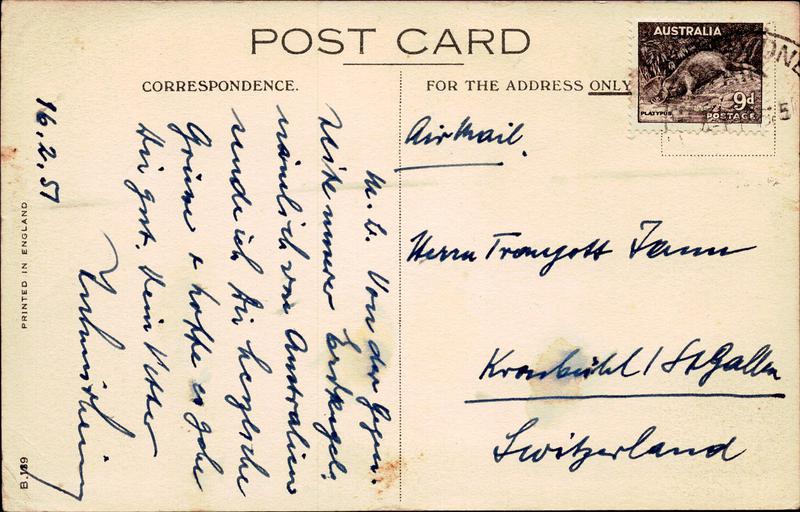 POST CARD
CORRESPONDENCE.
FOR THE ADDRESS ONLY
AUSTRALIA
PLATYPUS
9d
POSTAGE
16.2.51
M. L. Von der Gegen-
seite unserer Erdkugel,
nämlich von Australien
sende ich Dir herzliche
Grüsse & hoffe es gehe
Dir gut. Dein Vetter
Air Mail.
Herrn Traugott
Kronbühl / St Gallen
Switzerland
PRINTED IN ENGLAND
B.189